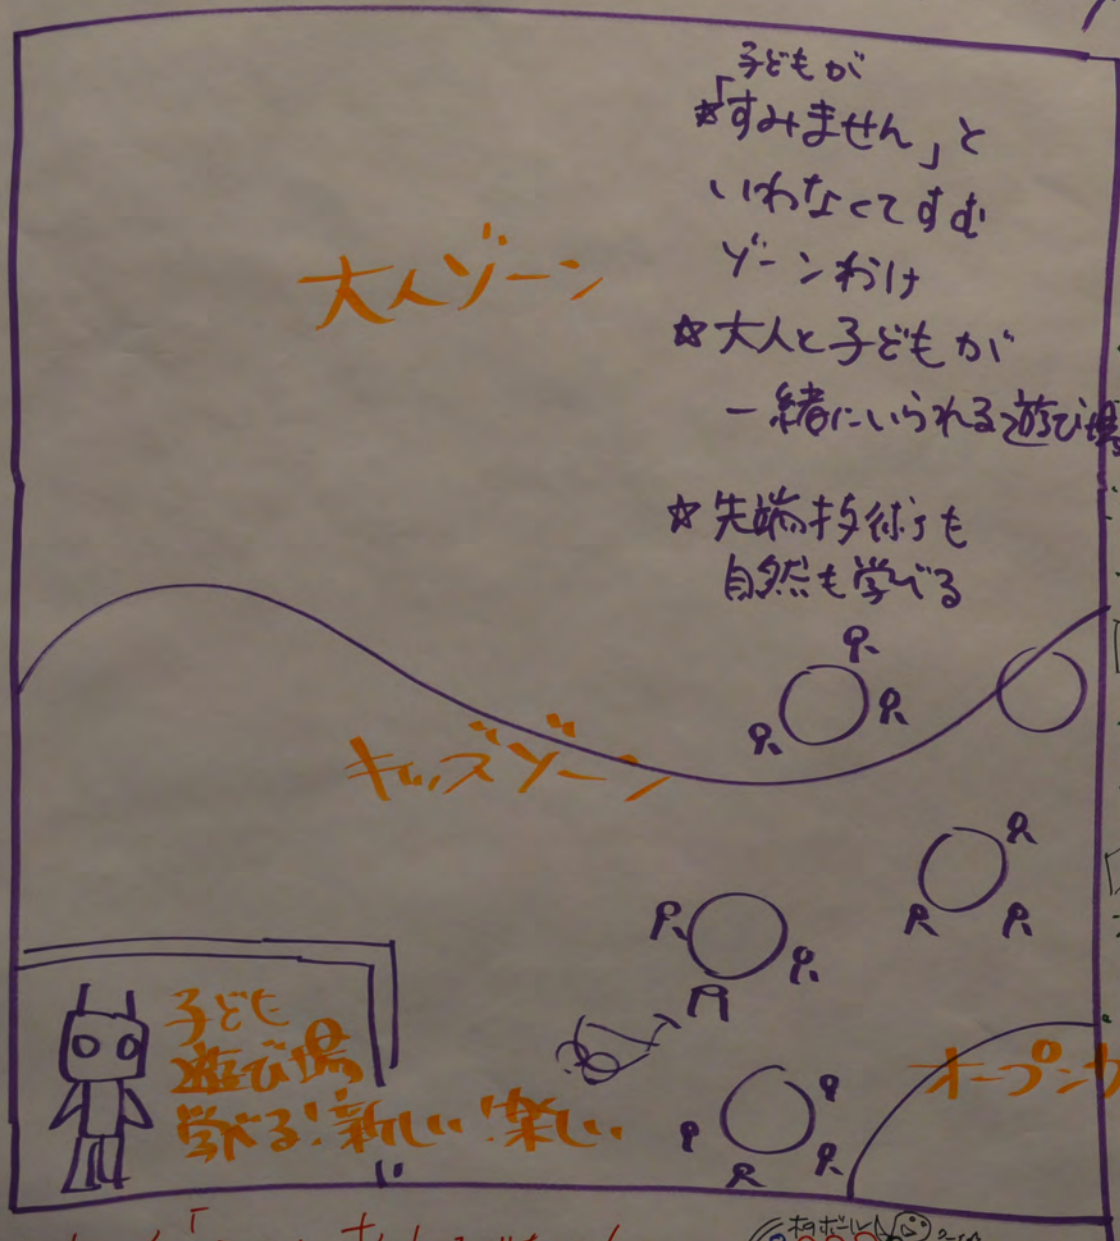 子どもが
☆「すみません」と
いわなくてすむ
ゾーンわけ
大人ゾーン
☆大人と子どもが
一緒にいられる遊び場
☆先端技術も
自然も学べる
キッズゾーン
子ども
遊び場
学べる!新しい!楽しい
オープンカ